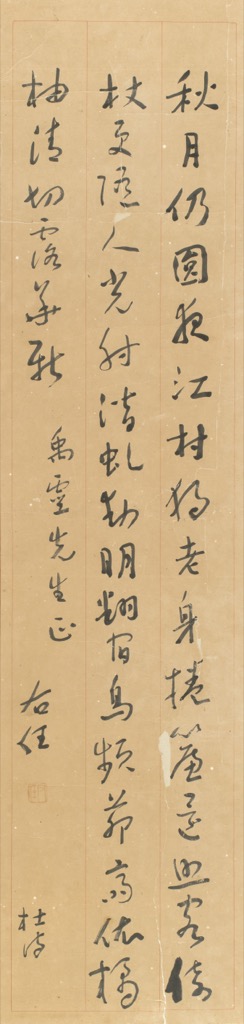 秋月仍圓夜江村獨老身捲簾還照客倚
杖更隨人光射潛虬動明翻宿鳥頻茆齋依橘
柚清切露華新
禹先生正
右任
杜詩